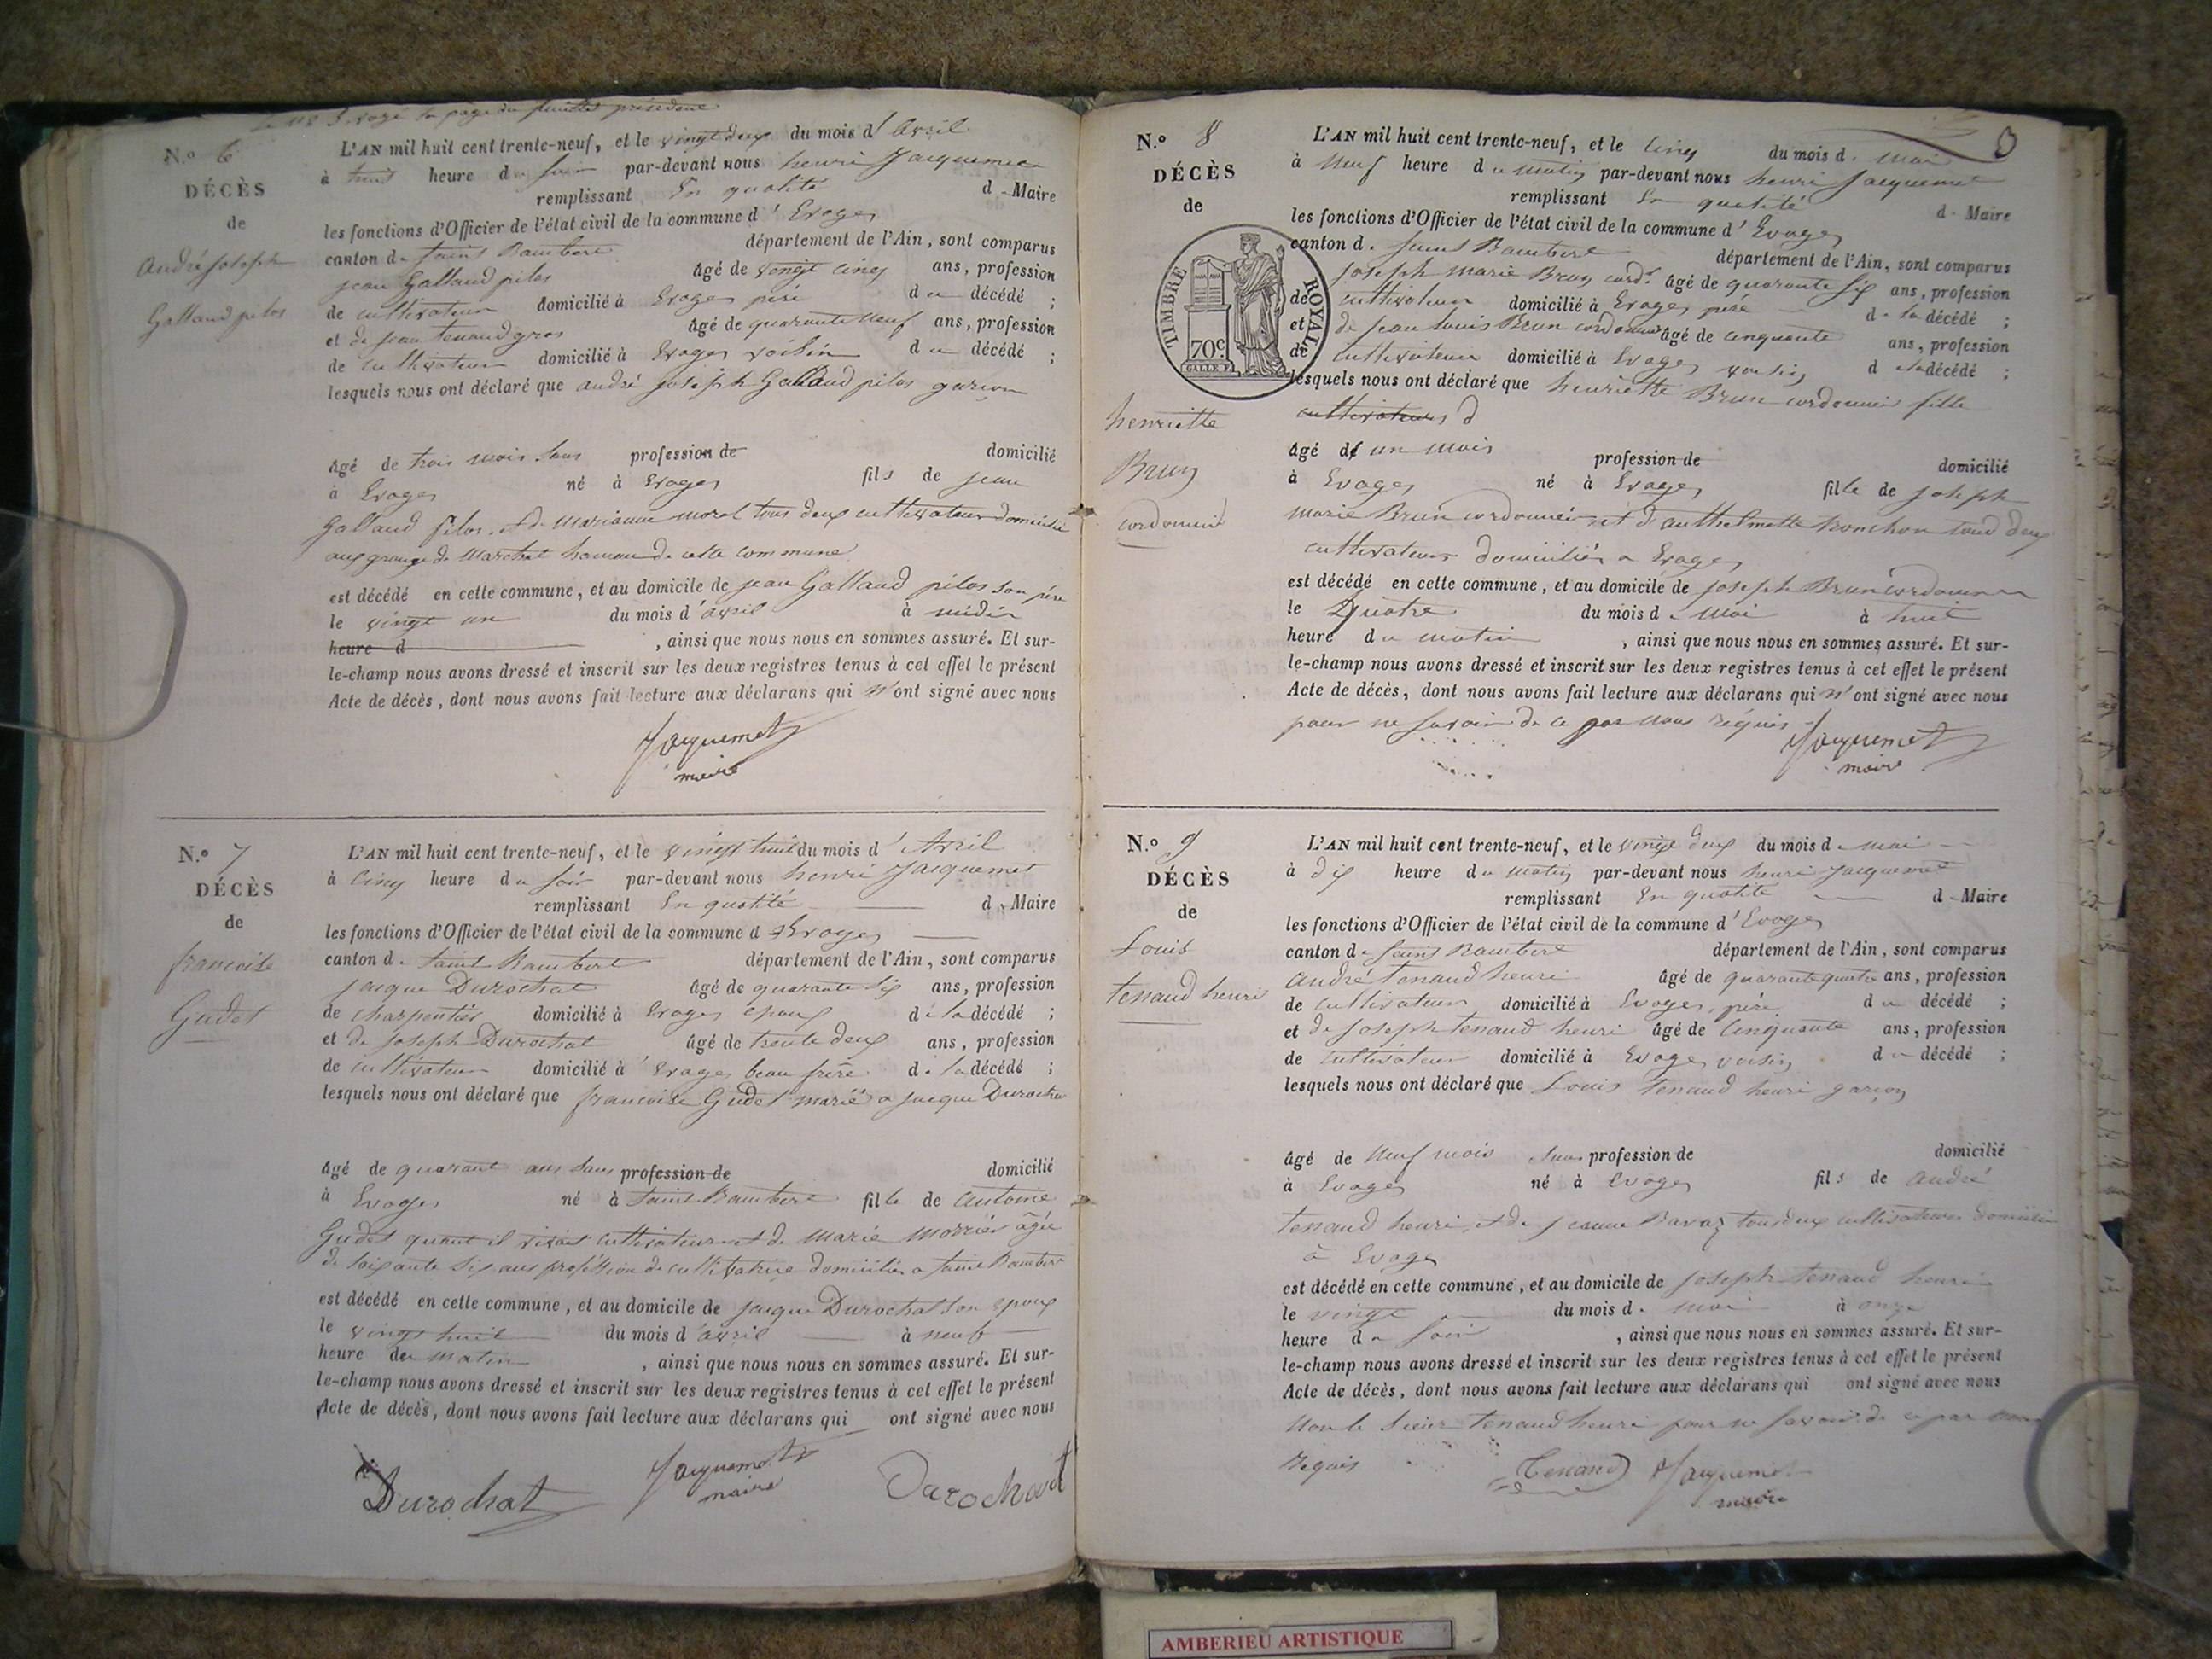 N.º 6
DÉCÈS
de
André Joseph
Galland pilos
L'AN mil huit cent trente-neuf, et le vingt deux du mois d' Avril
à huit heure du soir par-devant nous henri Jacquemet
remplissant En qualité d - Maire
les fonctions d'Officier de l'état civil de la commune d' Evoges
canton de Saint Rambert département de l'Ain, sont comparus
jean Galland pilos âgé de vingt cinq ans, profession
de cultivateur domicilié à Evoges père du décédé ;
et de jean tenand gros âgé de quarante neuf ans, profession
de cultivateur domicilié à Evoges voisin du décédé ;
lesquels nous ont déclaré que andré joseph Galland pilos garçon
âgé de trois mois sans profession de domicilié
à Evoges né à Evoges fils de jean
Galland pilos et de marianne morel tous deux cultivateur domicilié
aux granges de Marchat hameau de cette commune
est décédé en cette commune, et au domicile de jean Galland pilos son père
le vingt un du mois d'avril à midi
heure d , ainsi que nous nous en sommes assuré. Et sur-
le-champ nous avons dressé et inscrit sur les deux registres tenus à cet effet le présent
Acte de décès, dont nous avons fait lecture aux déclarans qui n'ont signé avec nous
Jacquemet
maire
N.º 7
DÉCÈS
de
francoise
Gudet
L'AN mil huit cent trente-neuf, et le vingt huit du mois d' Avril
à cinq heure du soir par-devant nous henri Jacquemet
remplissant En qualité d - Maire
les fonctions d'Officier de l'état civil de la commune d Evoges
canton d. Saint Rambert département de l'Ain, sont comparus
jacque Durochat âgé de quarante six ans, profession
de charpentier domicilié à Evoges epoux de la décédé ;
et de joseph Durochat âgé de trente deux ans, profession
de cultivateur domicilié à Evoges beau frère de la décédé ;
lesquels nous ont déclaré que francoise Gudet marié a jacque Durochat
âgé de quarant ans sans profession de domicilié
à Evoges né à Saint Rambert fille de antoine
Gudet quant il vivait cultivateur et de Marie morrier âgée
de soixante six ans proféssion de cultivatrice domiciliée a saint Rambert
est décédé en cette commune, et au domicile de jacque Durochat son epoux
le vingt huit du mois d'avril à neuf
heure du matin , ainsi que nous nous en sommes assuré. Et sur-
le-champ nous avons dressé et inscrit sur les deux registres tenus à cet effet le présent
Acte de décès, dont nous avons fait lecture aux déclarans qui ont signé avec nous
Durochat Jacquemet Durochat
maire
N.º 8
DÉCÈS
de
TIMBRE ROYAL
70c
henriette
Brun
cordonnier
L'AN mil huit cent trente-neuf, et le cinq du mois d. mai
à neuf heure du matin par-devant nous henri Jacquemet
remplissant En qualité d - Maire
les fonctions d'Officier de l'état civil de la commune d' Evoges
canton d. Saint Rambert département de l'Ain, sont comparus
joseph marie Brun cord.r âgé de quarante six ans, profession
de cultivateur domicilié à Evoges père de la décédé ;
et de jean louis Brun cordonnier âgé de cinquante ans, profession
de cultivateur domicilié à Evoges voisin de la décédé ;
lesquels nous ont déclaré que henriette Brun cordonnier fille
cultivateurs d
âgé de un mois profession de domicilié
à Evoges né à Evoges fille de joseph
marie Brun cordonnier et d'anthelmette tronchon tous deux
cultivateur domiciliés a Evoges
est décédé en cette commune, et au domicile de joseph Brun cordonnier
le Quatre du mois d. mai à huit
heure du matin , ainsi que nous nous en sommes assuré. Et sur-
le-champ nous avons dressé et inscrit sur les deux registres tenus à cet effet le présent
Acte de décès, dont nous avons fait lecture aux déclarans qui n'ont signé avec nous
pour ne savoir de ce par nous réquis
Jacquemet
maire
N.º 9
DÉCÈS
de
Louis
tenand henri
L'AN mil huit cent trente-neuf, et le vingt deux du mois de mai
à dix heure du matin par-devant nous henri Jacquemet
remplissant En qualité d - Maire
les fonctions d'Officier de l'état civil de la commune d'Evoges
canton de Saint Rambert département de l'Ain, sont comparus
André tenand henri âgé de quarante quatre ans, profession
de cultivateur domicilié à Evoges père du décédé ;
et de joseph tenand henri âgé de Cinquante ans, profession
de cultivateur domicilié à Evoges voisin du décédé ;
lesquels nous ont déclaré que Louis tenand henri garçon
âgé de neuf mois sans profession de domicilié
à Evoges né à Evoges fils de andré
tenand henri et de jeanne Ravaz tous deux cultivateurs domicilié
à Evoges
est décédé en cette commune, et au domicile de joseph tenand henri
le vingt du mois d. mai à onze
heure du soir , ainsi que nous nous en sommes assuré. Et sur-
le-champ nous avons dressé et inscrit sur les deux registres tenus à cet effet le présent
Acte de décès, dont nous avons fait lecture aux déclarans qui ont signé avec nous
Non le sieur tenand henri pour ne savoir de ce par nous
requis
Tenand Jacquemet
maire
AMBERIEU ARTISTIQUE